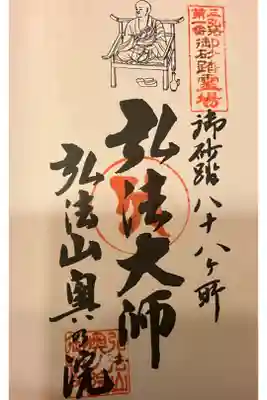 三弘法
第一番
御砂踏霊場
御砂踏八十八ヶ所
弘法大師
弘法山奥之院